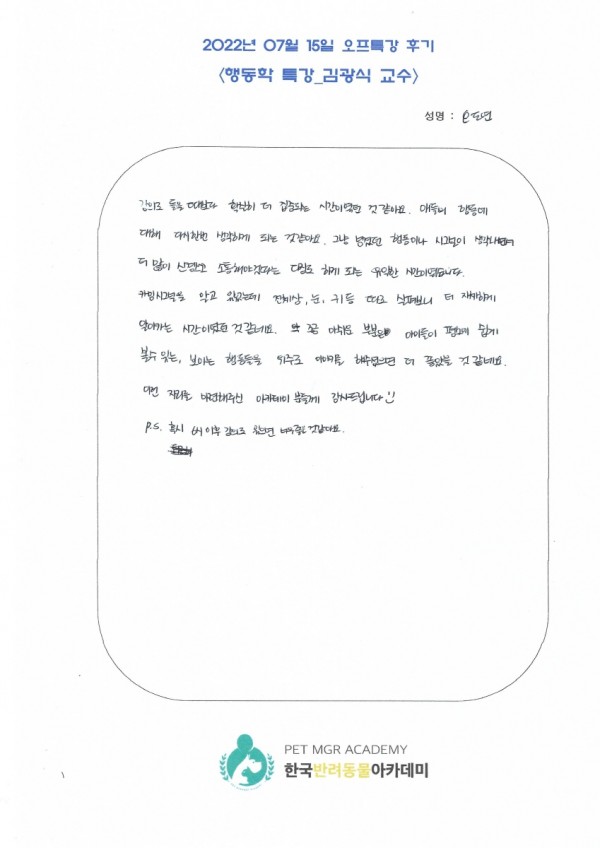 2022년 07월 15일 오프특강 후기
<행동학 특강_김광식 교수>
성명 :
강의로 들을 때보다 확실히 더 집중되는 시간이었던 것 같아요. 행동에
대해 다시한번 생각하게 되는 것같아요. 그냥 넘겼던 행동이나 시그널이
더 많이 소통해야겠다는 다짐도 하게 되는 유익한 시간이었습니다.
카밍시그널을 알고 있었는데 전체상, 눈, 귀 등 따로 살펴보니 더 자세하게
알아가는 시간이었던 것 같네요. 꼭 아쉬운 부분은 아이들이 평소에 쉽게
볼수 있는, 보이는 행동들을 위주로 이야기를 해주셨으면 더 좋았을 것 같네요.
이런 자리를 마련해주신 아카데미 분들께 감사드립니다
P.S. 혹시 6시 이후 강의도 있으면 것같아요.
PET MGR ACADEMY
한국반려동물아카데미